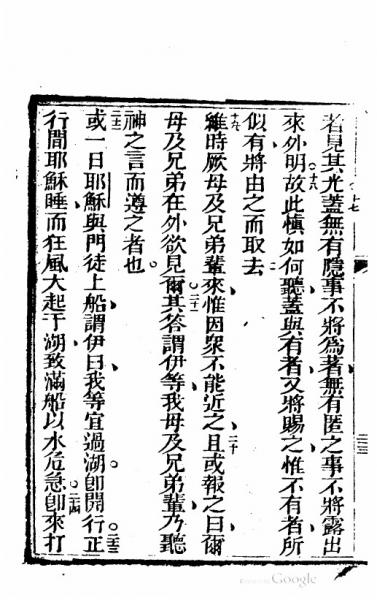 者見其光蓋無有隱事不將為著無有匿之事不將露出
十七
來外明故此慎如何聽蓋與有者又將賜之惟不有者所
十八
似有將由之而取去
十九
維時厥母及兄弟輩來惟因衆不能近之且或報之曰爾
二十
母及兄弟在外欲見爾其答謂伊等我母及兄弟輩乃聽
二十一
神之言而遵之者也
二十二
或一日耶穌與門徒上船謂伊曰我等宜過湖卽開行正
二十三
行間耶穌睡而狂風大起于湖致滿船以水后急卽來打
二十四
Google